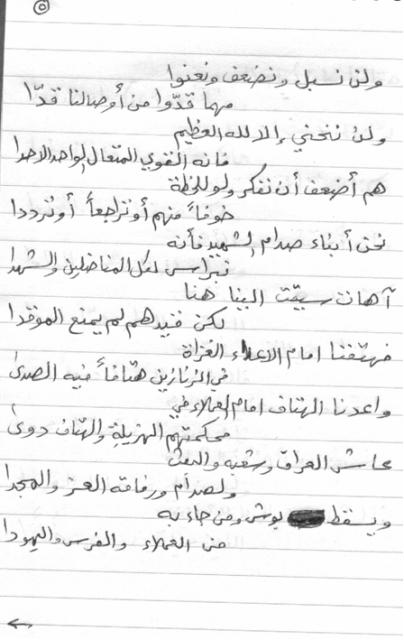 ٥
ولن نسبل ونضعف ونعنوا
مهما قدّوا من أوصالنا قدّا
ولن ننحني إلا لله العظيم
فانه القوي المتعال الواحد الاحدا
هم أضعف أن نفكر ولو للحظة
خوفاً منهم أو تراجعاً أو ترددا
نحن أبناء صدام الشهيد فأنه
نبراس لكل المناضلين والشهدا
آهات سيقت الينا هنا
لكن قيدهم لم يمنع الموقدا
فهتفنا امام الاعداء الغزاة
في الزنازين هتافاً فيه الصدى
واعدنا الهتاف امام العملاء في
محكمتهم الهزيلة والهتاف دوى
عاش العراق وشعبه والبعث
ولصدام ورفاقه العز والمجدا
ويسقط بوش ومن جاء به
من العملاء والفرس واليهودا